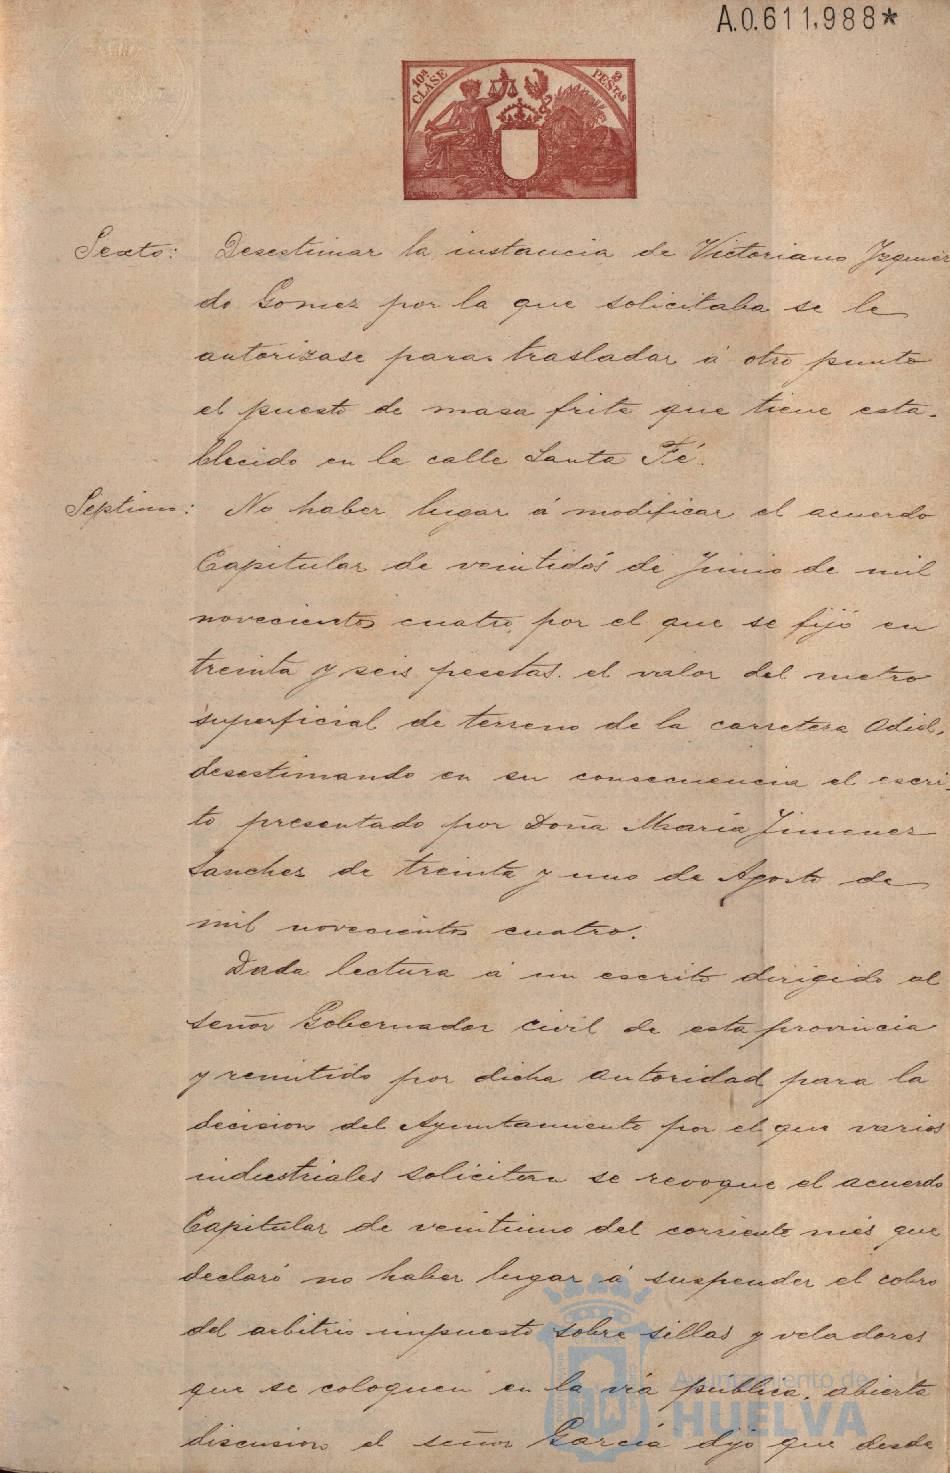 A.0.611,988*
10ª CLASE
2 PESTAS
Sexto: Desestimar la instancia de Victoriano Izquier
do Gomez por la que solicitaba se le
autorizase para trasladar á otro punto
el puesto de masa frita que tiene esta-
blecido en la calle Santa Fé.
Septimo: No haber lugar á modificar el acuerdo
Capitular de veintidós de Junio de mil
novecientos cuatro, por el que se fijó en
treinta y seis pesetas el valor del metro
superficial de terreno de la carretera Odiel,
desestimando en su consecuencia el escri-
to presentado por Doña María Jimenez
Sanchez de treinta y uno de Agosto de
mil novecientos cuatro.
Dada lectura á un escrito dirigido al
señor Gobernador civil de esta provincia
y remitido por dicha autoridad para la
decision del Ayuntamiento por el que varios
industriales solicitan se revoque el acuerdo
Capitular de veintiuno del corriente mes que
declaró no haber lugar á suspender el cobro
del arbitrio impuesto sobre sillas y veladores
que se coloquen en la vía publica, abierta
discusion el señor García dijo que desde
Ayuntamiento de
HUELVA